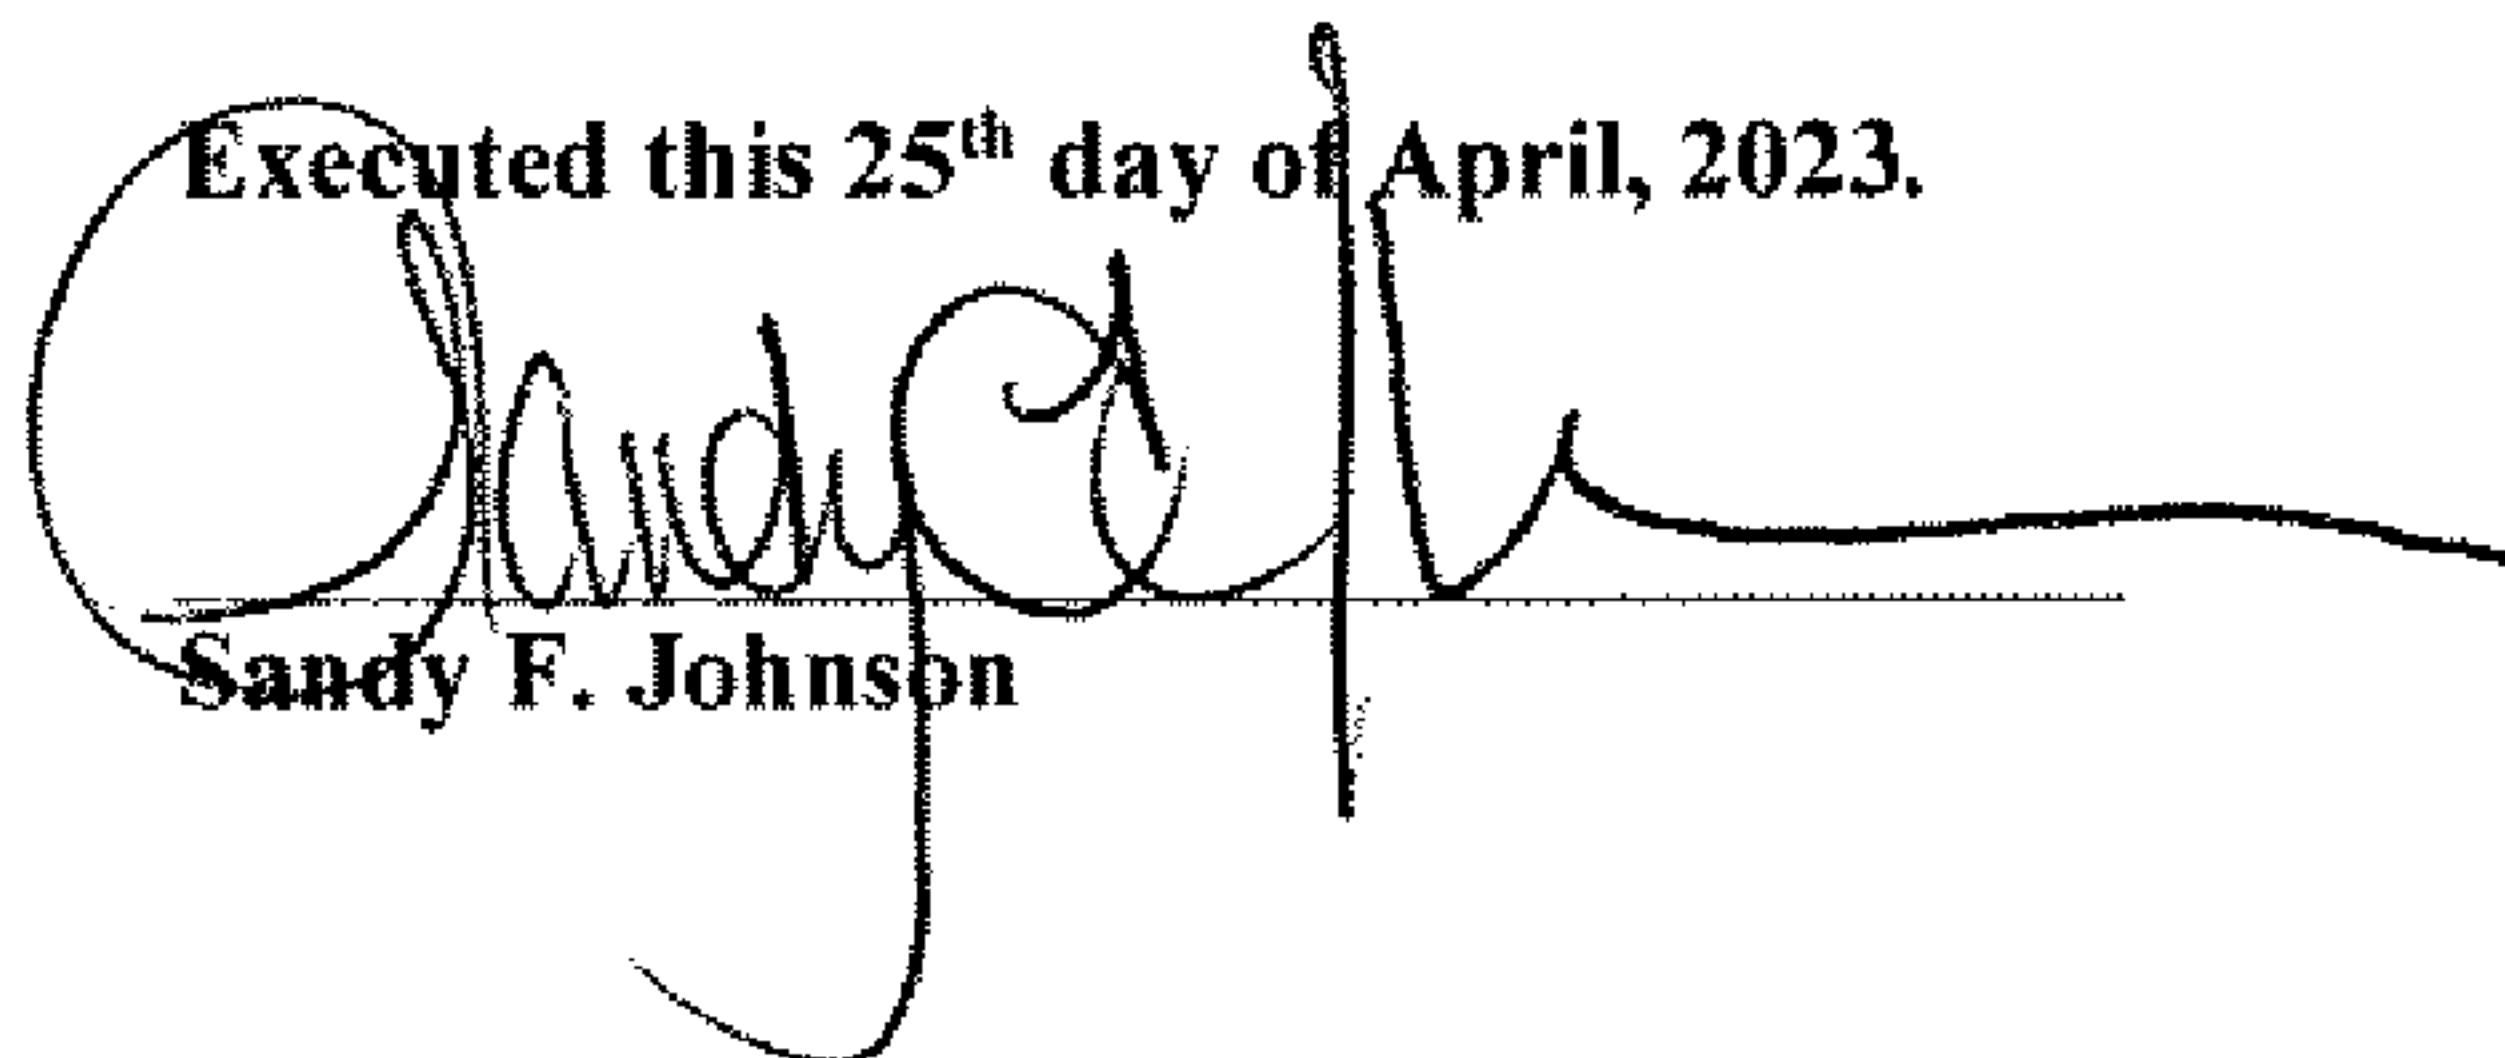 Executed this 25th day of April, 2023.
Sandy F. Johnson